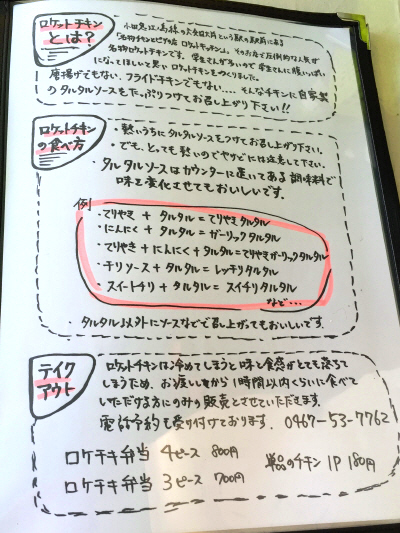 ロケットチキンとは?
小田急江ノ島線の六会日大前という駅の駅前にある
「名物チキンとピザの店 ロケットキッチン」。そのお店で圧倒的な人気が
名物ロケットチキンです。学生さんが多いので学生さんに腹いっぱい
になってほしいて思いロケットチキンをつくりました。
唐揚げでもない、フライドチキンでもない.... そんなチキンに自家製
のタルタルソースをたっぷりつけてお召し上がり下さい!!
ロケットチキンの食べ方
・熱いうちにタルタルソースをつけてお召し上がり下さい。
・でも、とっても熱いのでヤケドには注意して下さい。
・タルタルソースはカウンターに置いてある調味料で
味を変化させてもおいしいです。
例
・てりやき + タルタル = てりやきタルタル
・にんにく + タルタル = ガーリックタルタル
・てりやき + にんにく + タルタル = てりやきガーリックタルタル
・チリソース + タルタル = レッチリタルタル
・スイートチリ + タルタル = スイチリタルタル
など...
・タルタル以外にソースなどで召し上がってもおいしいです。
テイクアウト
ロケットチキンは冷めてしまうと味と食感がとても落ちて
しまうため、お渡ししてから1時間以内くらいに食べて
いただける方にのみの販売とさせていただきます。
電話予約も受け付けております。 0467-53-7762
ロケチキ弁当 4ピース 800円
ロケチキ弁当 3ピース 700円
単品のチキン 1P 180円